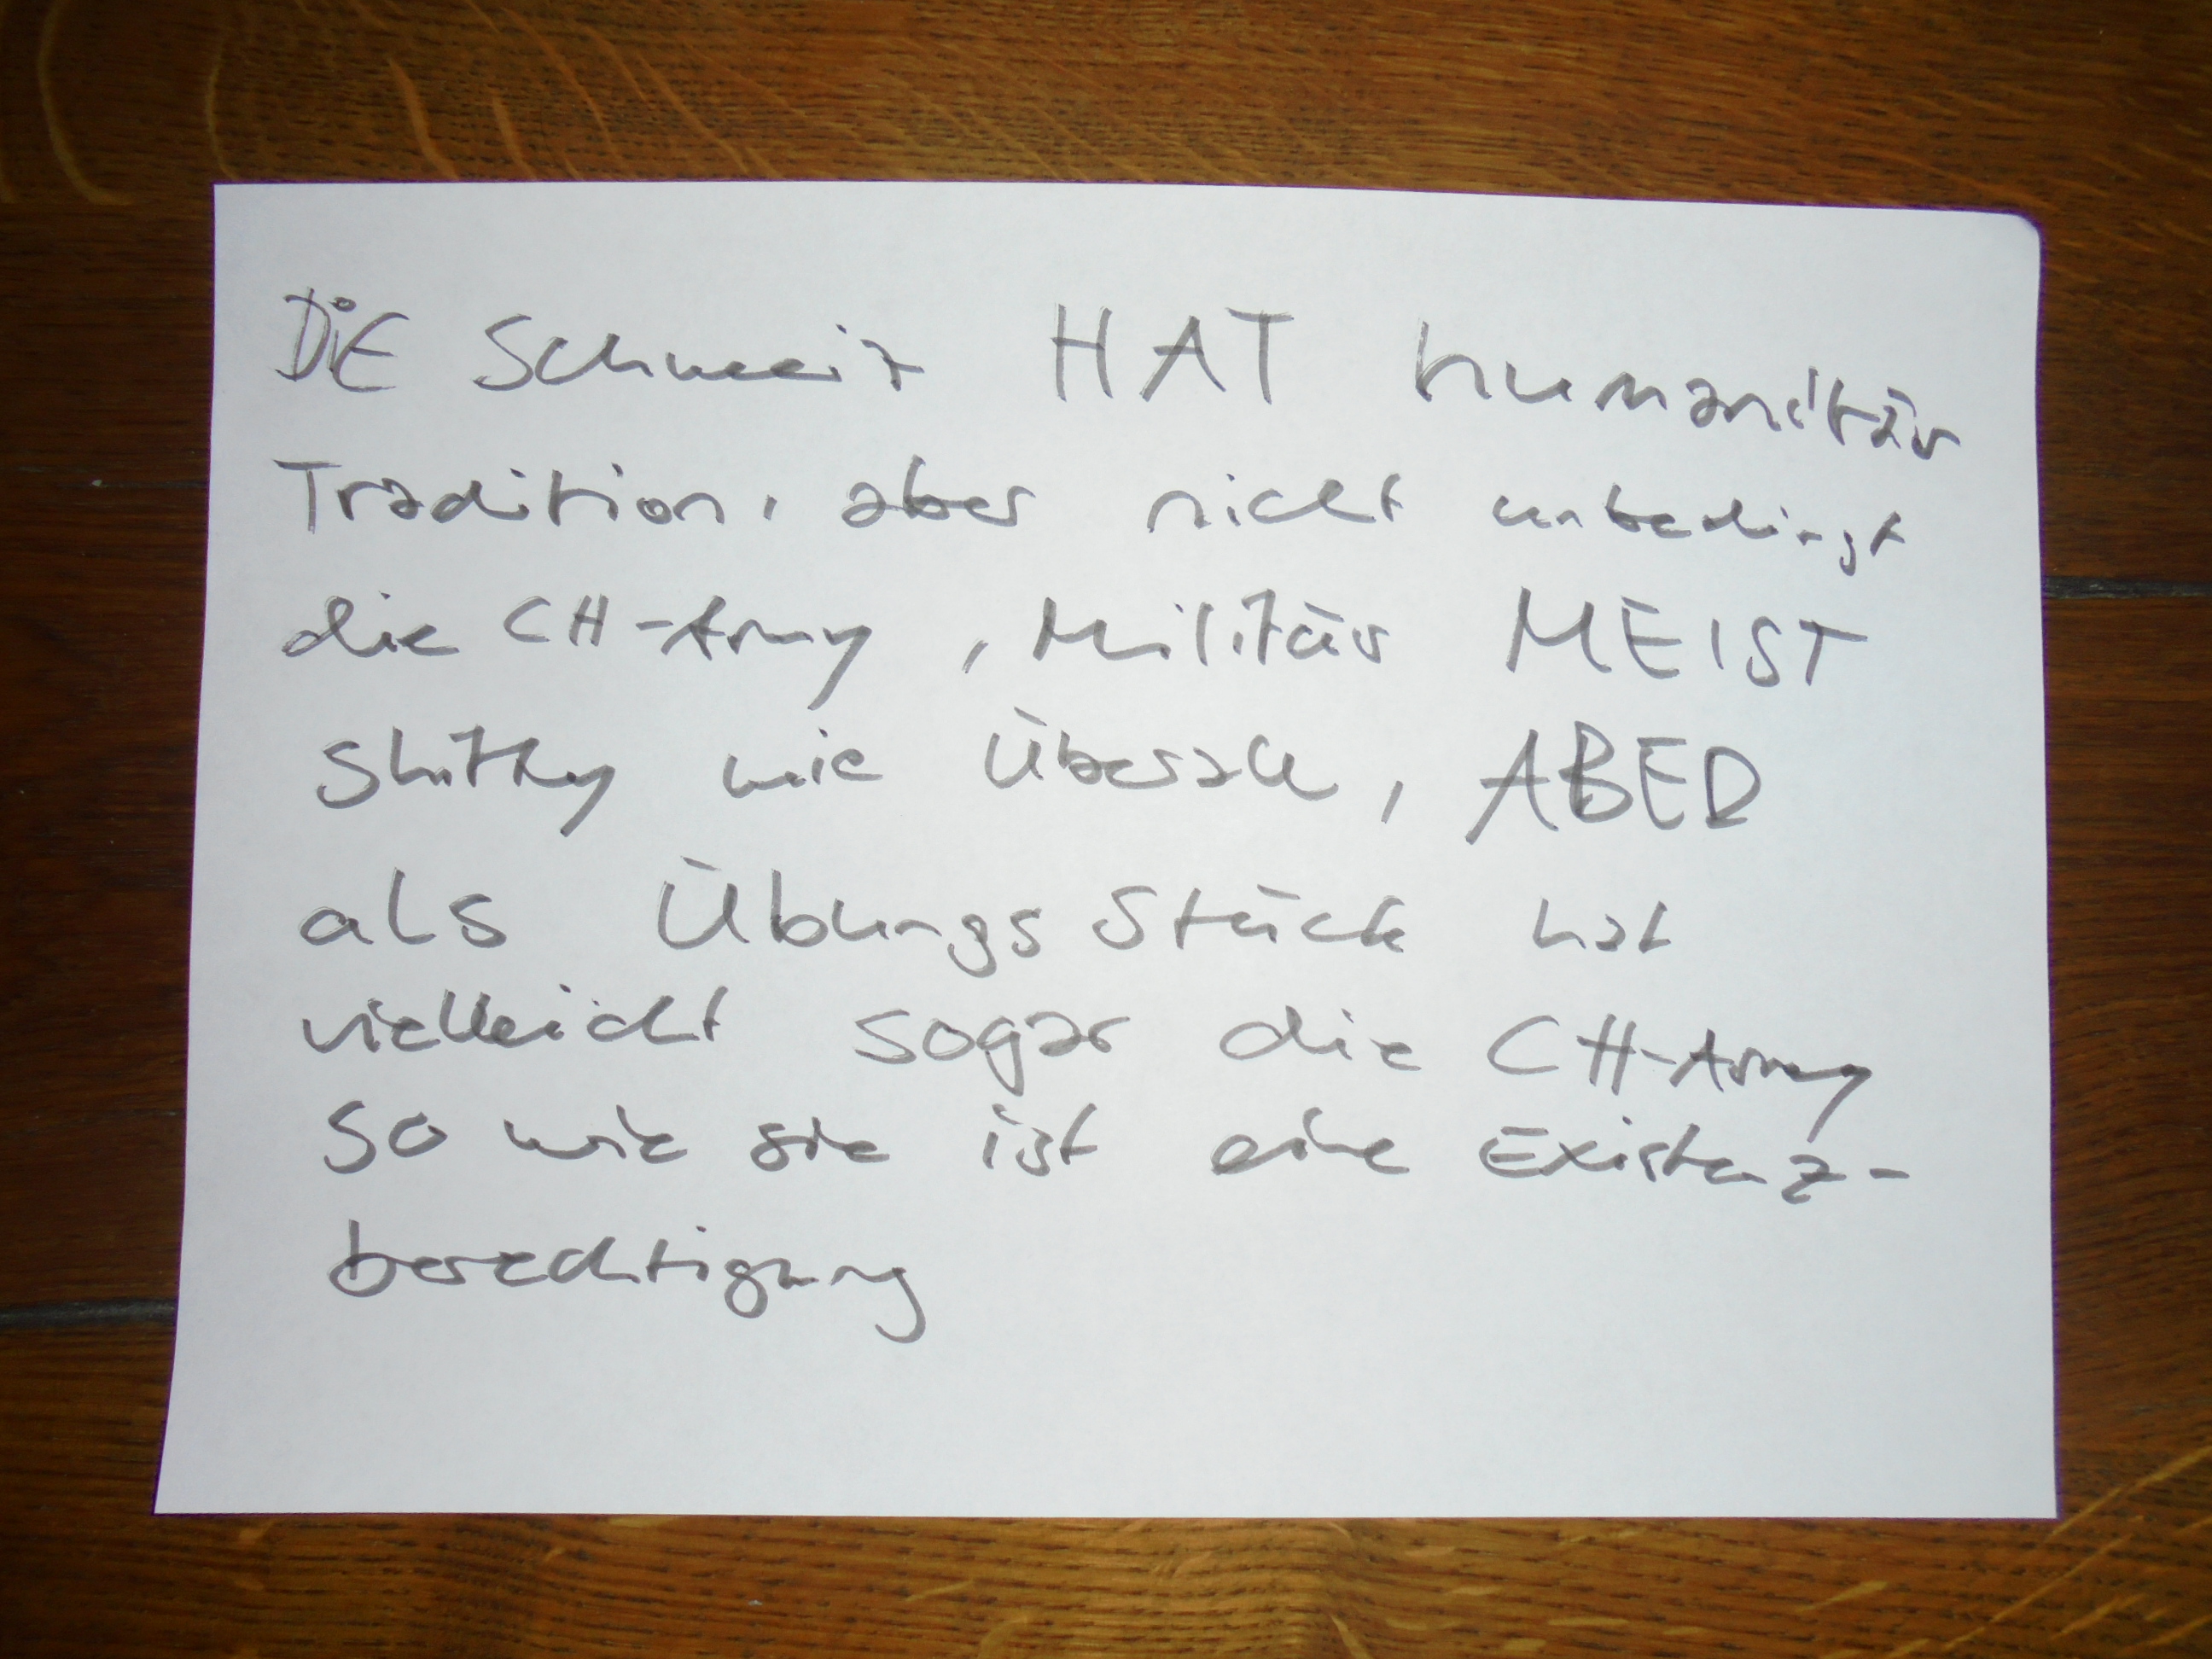 DiE Schweiz HAT humanitär
Tradition, aber nicht unbedingt
die CH-Army, Militär MEIST
shitty wie überall, ABER
als Übungsstück hat
vielleicht sogar die CH-Army
so wie sie ist eine Existenz-
berechtigung